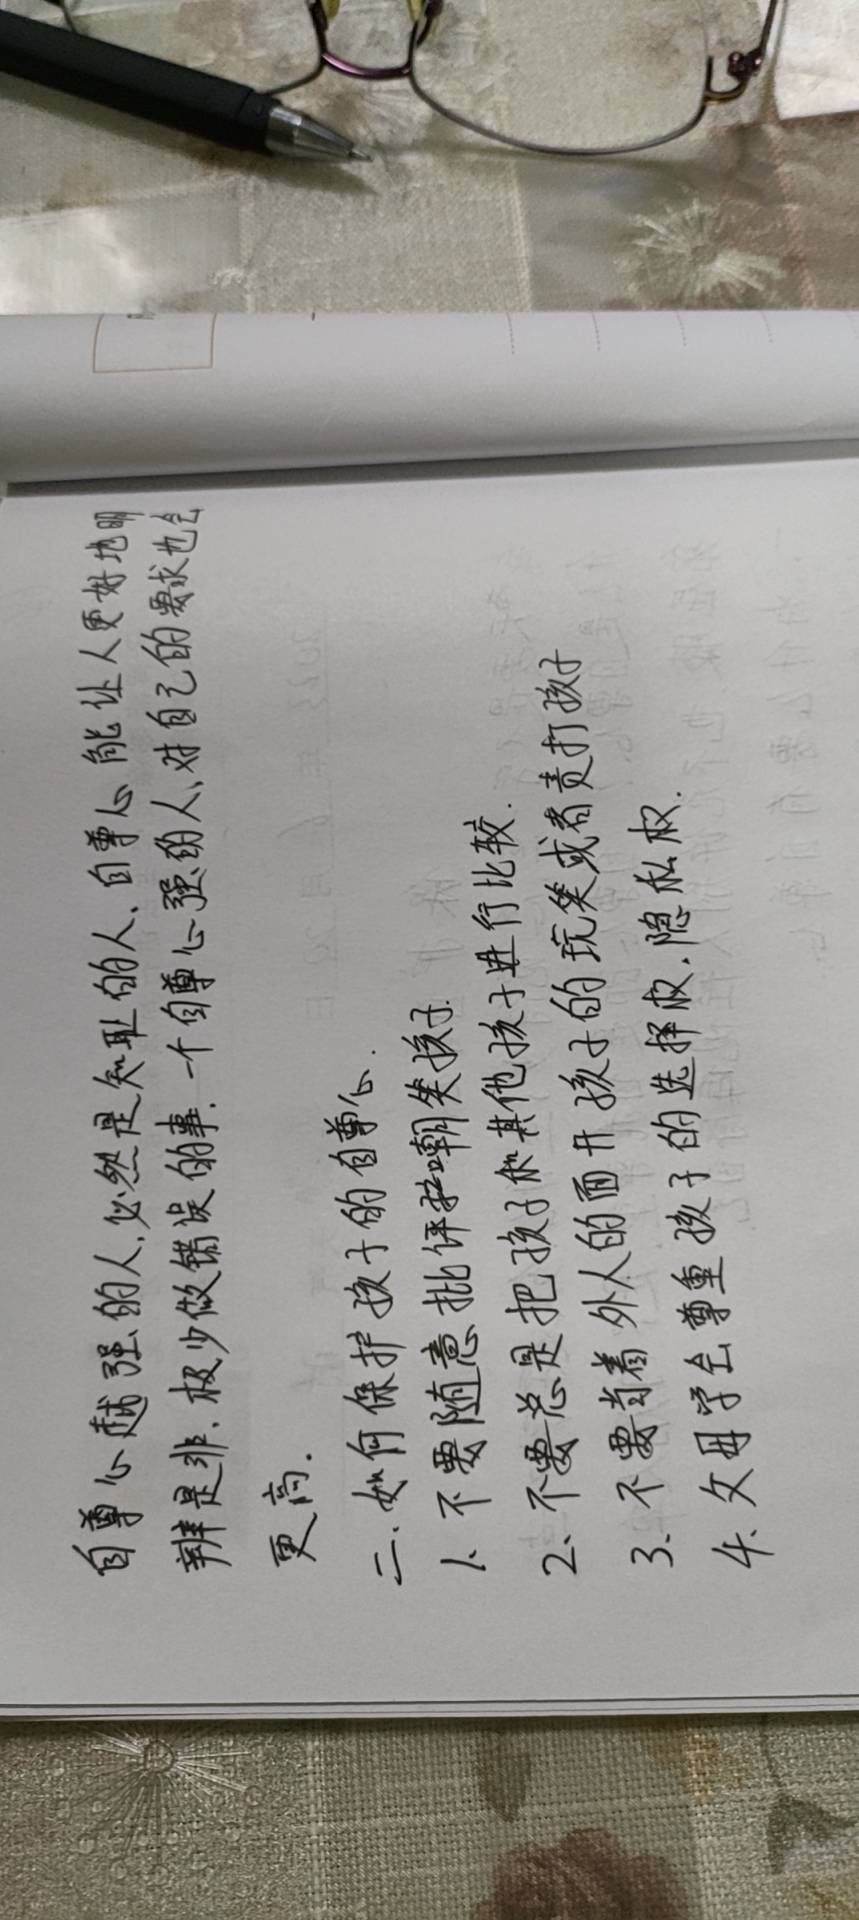 自尊心越强的人,必然是知耻的人,自尊心能让人更好地明
辨是非,极少做错误的事.一个自尊心强的人,对自己的要求也会
更高.
二、如何保护孩子的自尊心.
1、不要随意批评和嘲笑孩子.
2、不要总是把孩子和其他孩子进行比较.
3、不要当着外人的面开孩子的玩笑或者责打孩子
4、父母学会尊重孩子的选择权,隐私权.